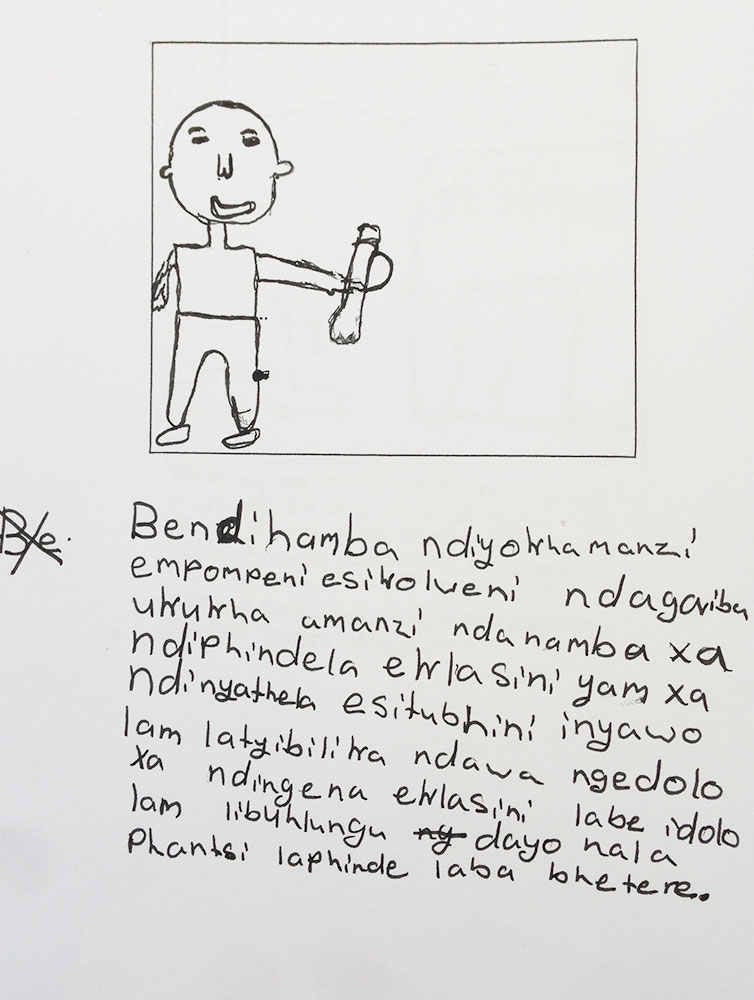 B/e.
Bendihamba ndiyokhamanzi
empompeni esikolweni ndagqriba
ukukha amanzi ndahamba xa
ndiphindela eklasini yam xa
ndinyathela esitubhini inyawo
lam latyibilika ndawa ngedolo
xa ndingena eklasini labe idolo
lam libuhlungu ng dayo hala
phantsi laphinde laba bhetere.